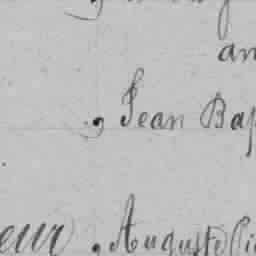 an
, Jean Bap
eur , Auguste